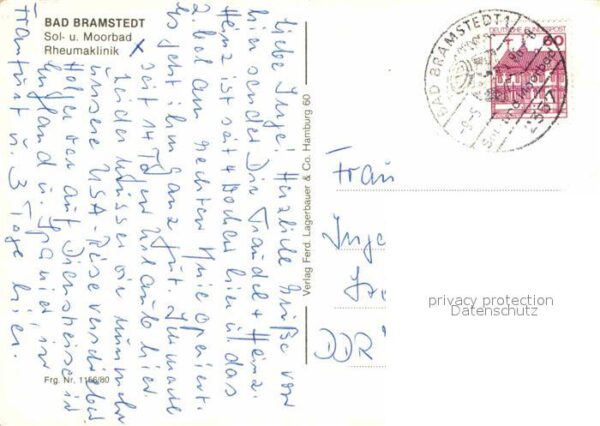 BAD BRAMSTEDT
Sol- u. Moorbad
Rheumaklinik
Liebe Inge! Herzliche Grüße von
hier sendet Dir Traudel + Heinz.
Heinz ist seit 4 Wochen hier u. das
2. Mal am rechten Knie operiert.
Es geht ihm ganz gut. Ich mache
seit 14 Tagen Urlaub hier.
Leider müssen wir nunmehr
unsere USA-Reise verschieben
Holger war auf Dienstreise in
England u. Spanien, in
Frankfurt u. 3 Tage hier.
Verlag Ferd. Lagerbauer & Co. Hamburg 60
Frg. Nr. 1156/80
DEUTSCHE BUNDESPOST
60
BAD BRAMSTEDT 1
Sol- und Moorbad
2357
Frau
Inge
DDR
privacy protection
Datenschutz